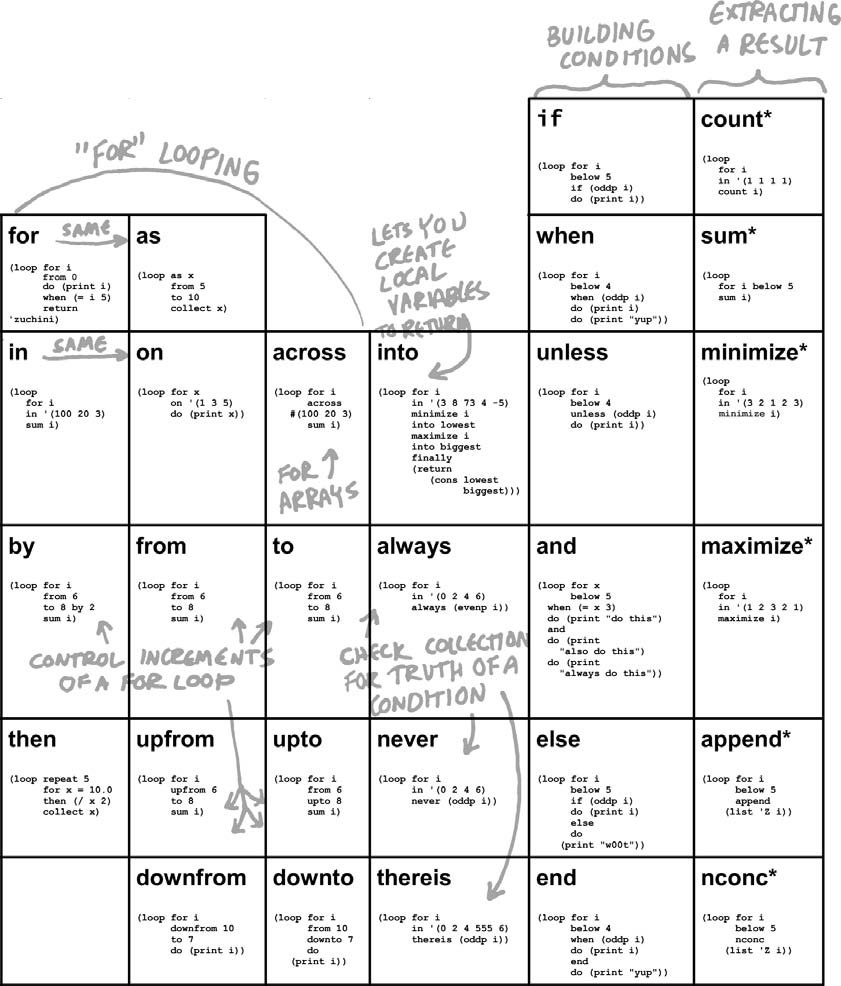 BUILDING
CONDITIONS
EXTRACTING
A RESULT
"FOR" LOOPING
if
(loop for i
below 5
if (oddp i)
do (print i))
count*
(loop
for i
in '(1 1 1 1)
count i)
for
SAME
(loop for i
from 0
do (print i)
when (= i 5)
return
'zuchini)
as
(loop as x
from 5
to 10
collect x)
LETS YOU
CREATE
LOCAL
VARIABLES
TO RETURN
when
(loop for i
below 4
when (oddp i)
do (print i)
do (print "yup"))
sum*
(loop
for i below 5
sum i)
in
SAME
(loop
for i
in '(100 20 3)
sum i)
on
(loop for x
on '(1 3 5)
do (print x))
across
(loop for i
across
#(100 20 3)
sum i)
FOR
ARRAYS
into
(loop for i
in '(3 8 73 4 -5)
minimize i
into lowest
maximize i
into biggest
finally
(return
(cons lowest
biggest)))
unless
(loop for i
below 4
unless (oddp i)
do (print i))
minimize*
(loop
for i
in '(3 2 1 2 3)
minimize i)
by
(loop for i
from 6
to 8 by 2
sum i)
from
(loop for i
from 6
to 8
sum i)
to
(loop for i
from 6
to 8
sum i)
CONTROL INCREMENTS
OF A FOR LOOP
always
(loop for i
in '(0 2 4 6)
always (evenp i))
CHECK COLLECTION
FOR TRUTH OF A
CONDITION
and
(loop for x
below 5
when (= x 3)
do (print "do this")
and
do (print
"also do this")
do (print
"always do this"))
maximize*
(loop
for i
in '(1 2 3 2 1)
maximize i)
then
(loop repeat 5
for x = 10.0
then (/ x 2)
collect x)
upfrom
(loop for i
upfrom 6
to 8
sum i)
upto
(loop for i
from 6
upto 8
sum i)
never
(loop for i
in '(0 2 4 6)
never (oddp i))
else
(loop for i
below 5
if (oddp i)
do (print i)
else
do
(print "w00t"))
append*
(loop for i
below 5
append
(list 'Z i))
downfrom
(loop for i
downfrom 10
to 7
do (print i))
downto
(loop for i
from 10
downto 7
do
(print i))
thereis
(loop for i
in '(0 2 4 555 6)
thereis (oddp i))
end
(loop for i
below 4
when (oddp i)
do (print i)
end
do (print "yup"))
nconc*
(loop for i
below 5
nconc
(list 'Z i))